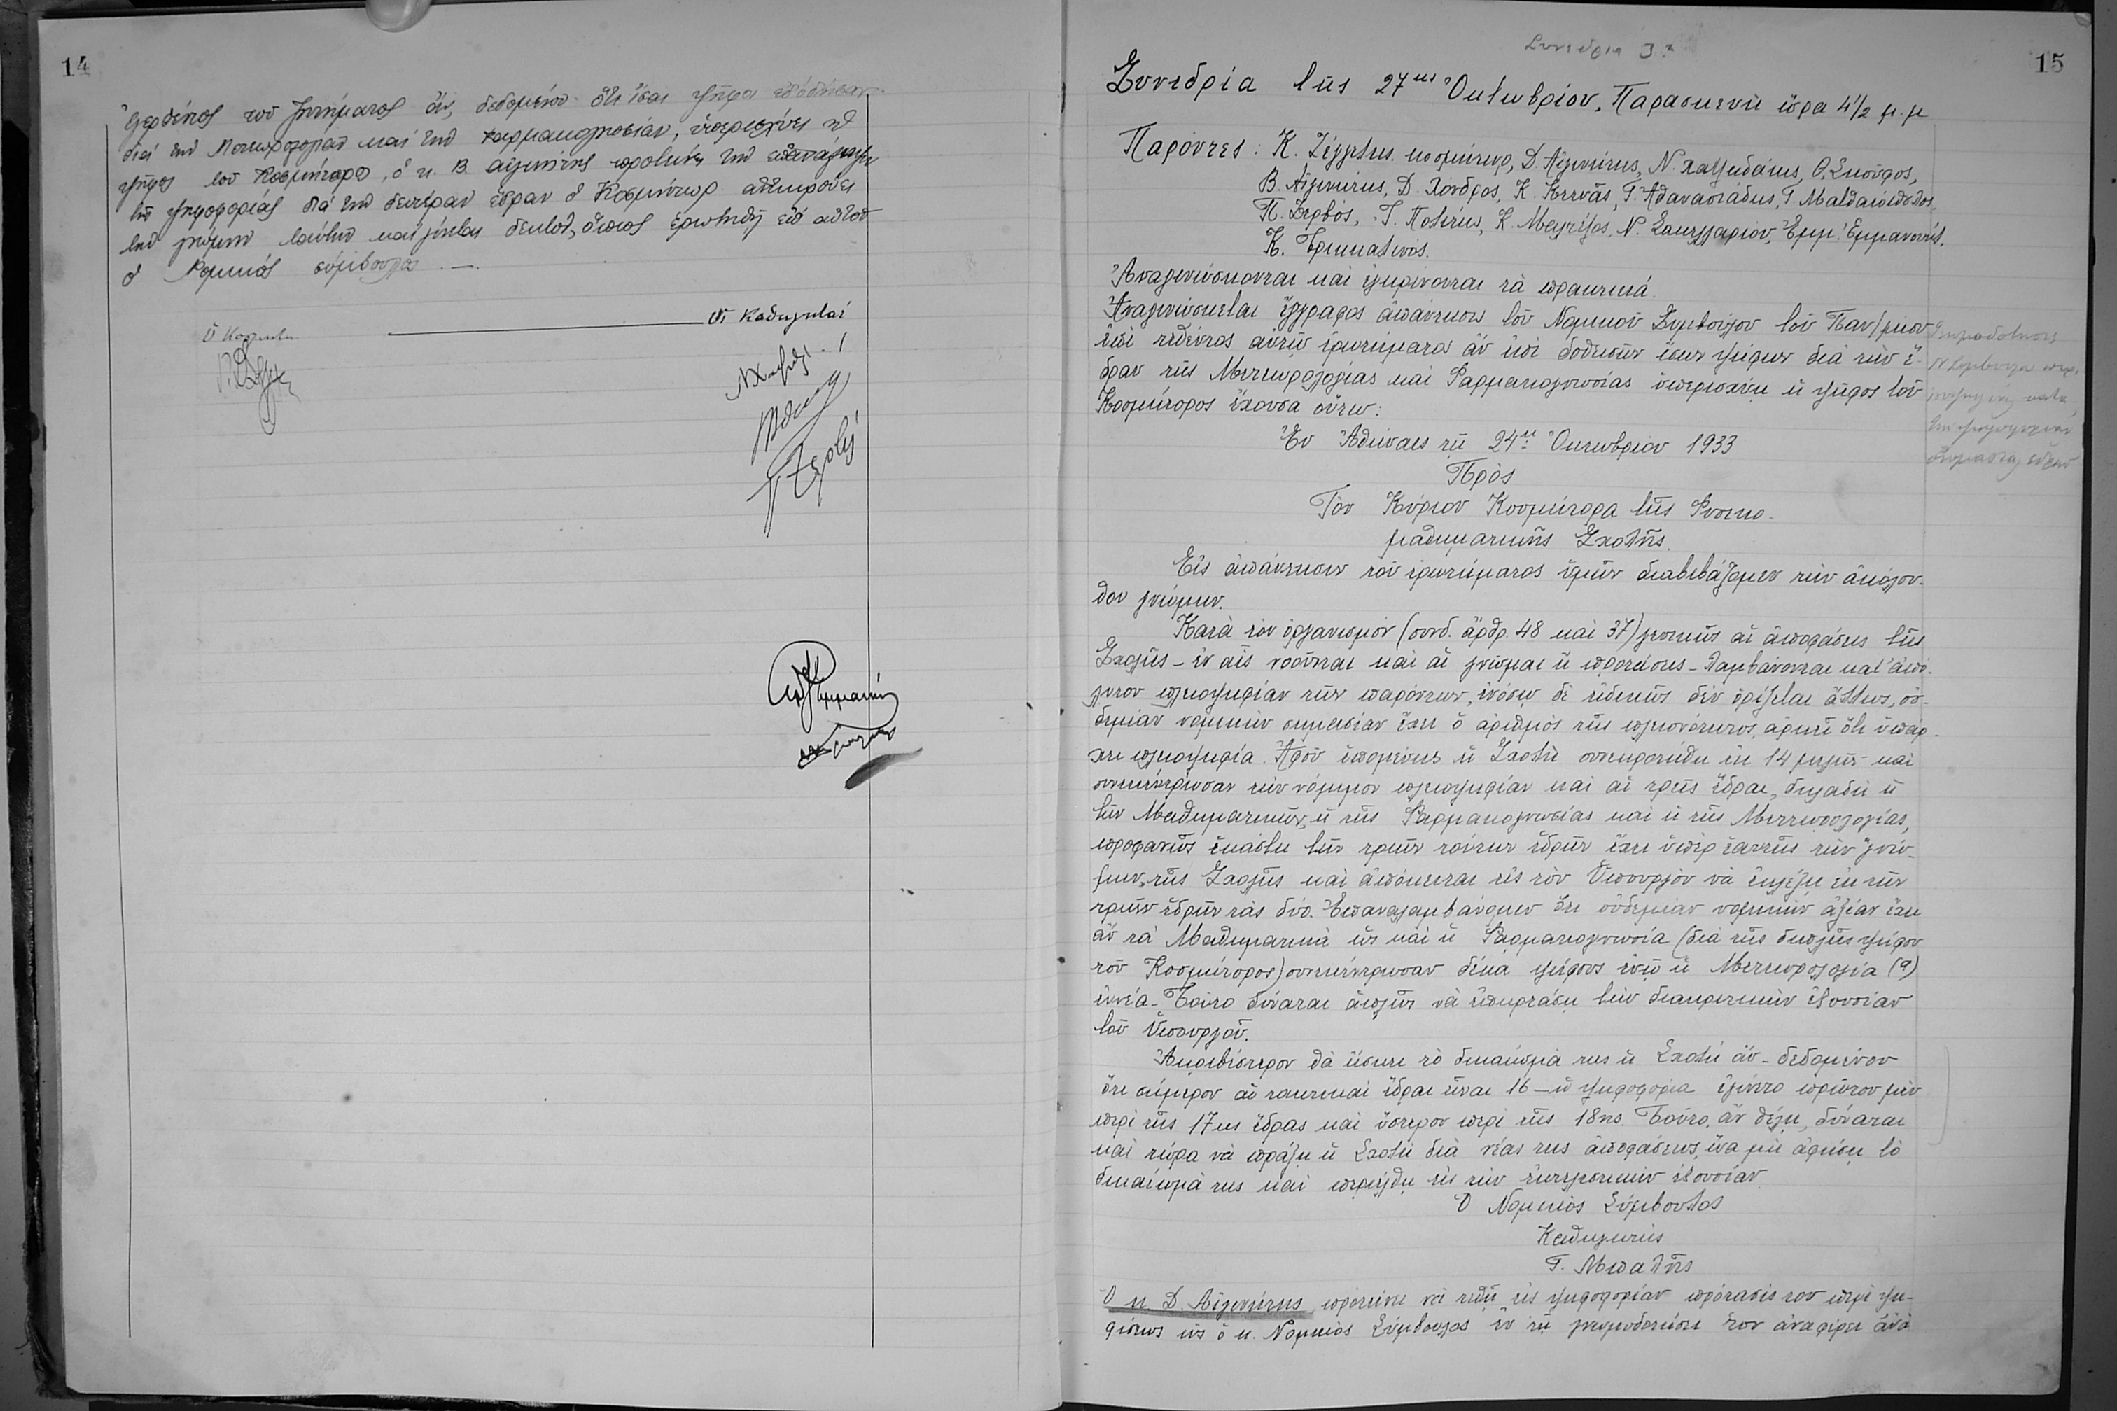 14
Ἐγερθέντος τοῦ ζητήματος ἄν, δεδομένου ὅτι ἴσαι ψῆφοι ἐδόθησαν
διὰ τὴν Μετεωρολογίαν καὶ τὴν Φαρμακογνωσίαν, ὑπερισχύει ἡ
ψῆφος τοῦ Κοσμήτορος, ὁ κ. Β. Αἰγινήτης προτείνει τὴν ἐπανάληψιν
τῆς ψηφοφορίας διὰ τὴν δευτέραν ἕδραν ὁ Κοσμήτωρ
τὴν γνώμην ταύτην καὶ γίνεται δεκτόν, ὅπως ἐρωτηθῇ ἐπὶ αὐτοῦ
ὁ Νομικὸς σύμβουλος —.
Ὁ Κοσμήτωρ
Οἱ Καθηγηταί
Συνεδρία 3η
15
Συνεδρία τῆς 27ης Ὀκτωβρίου, Παρασκευὴ ὥρα 4 1/2 μ.μ
Παρόντες: Κ. Ζέγγελης κοσμήτωρ, Δ. Αἰγινήτης, Ν. Χατζηδάκις, Θ. Σκοῦφος,
Β. Αἰγινήτης, Δ. Χόνδρος, Κ. Κτενᾶς, Γ. Ἀθανασιάδης, Γ. Ματθαιόπουλος
Π. Ζερβός, Ἰ. Πολίτης, Κ. Μαλτέζος, Ν. Σακελλαρίου, Ἐμμ. Ἐμμανουήλ.
Κ.
Ἀναγινώσκονται καὶ ἐγκρίνονται τὰ πρακτικά.
Ἀναγινώσκεται ἔγγραφος ἀπάντησις τοῦ Νομικοῦ Συμβούλου τοῦ Παν/μίου
ἐπὶ τεθέντος αὐτῷ ἐρωτήματος ἂν ἐπὶ δοθεισῶν ἴσων ψήφων διὰ τὴν ἕ-
δραν τῆς Μετεωρολογίας καὶ Φαρμακογνωσίας ὑπερισχύῃ ἡ ψῆφος τοῦ
Κοσμήτορος ἔχουσα οὕτω:
Γνωμοδότησις
Ν. Συμβούλου περὶ
Ἐν Ἀθήναις τῇ 24ῃ Ὀκτωβρίου 1933
Πρὸς
Τὸν Κύριον Κοσμήτορα τῆς Φυσικο-
μαθηματικῆς Σχολῆς.
Εἰς ἀπάντησιν τοῦ ἐρωτήματος ὑμῶν διαβιβάζομεν τὴν ἀκόλου-
θον γνώμην.
Κατὰ τὸν ὀργανισμὸν (συνδ. ἄρθρ. 48 καὶ 37) γενικῶς αἱ ἀποφάσεις τῆς
Σχολῆς – ἐν αἷς νοοῦνται καὶ αἱ γνῶμαι ἢ προτάσεις – λαμβάνονται κατ' ἀπό-
λυτον πλειοψηφίαν τῶν παρόντων, ἐνόσῳ δὲ εἰδικῶς δὲν ὁρίζεται ἄλλως, οὐ-
δεμίαν νομικὴν σημασίαν ἔχει ὁ ἀριθμὸς τῆς πλειονότητος, ἀρκεῖ ὅτι ὑπάρ-
χει πλειοψηφία. Ἀφοῦ ἑπομένως ἡ Σχολὴ συνεκροτήθη ἐκ 14 μελῶν καὶ
συνεκέντρωσαν τὴν νόμιμον πλειοψηφίαν καὶ αἱ τρεῖς ἕδραι, δηλαδὴ ἡ
τῶν Μαθηματικῶν, ἡ τῆς Φαρμακογνωσίας καὶ ἡ τῆς Μετεωρολογίας,
προφανῶς ἑκάστη τῶν τριῶν τούτων ἑδρῶν ἔχει ὑπὲρ ἑαυτῆς τὴν γνώ-
μην τῆς Σχολῆς καὶ ἀπόκειται εἰς τὸν Ὑπουργὸν νὰ ἐκλέξῃ ἐκ τῶν
τριῶν ἑδρῶν τὰς δύο. Ἐπαναλαμβάνομεν ὅτι οὐδεμίαν νομικὴν ἀξίαν ἔχει
ἂν τὰ Μαθηματικὰ ὡς καὶ ἡ Φαρμακογνωσία (διὰ τῆς διπλῆς ψήφου
τοῦ Κοσμήτορος) συνεκέντρωσαν δέκα ψήφους ἐνῷ ἡ Μετεωρολογία (9)
ἐννέα. Τοῦτο δύναται ἁπλῶς νὰ ἐπηρεάσῃ τὴν διακριτικὴν ἐξουσίαν
τοῦ Ὑπουργοῦ.
Ἀκριβέστερον θὰ ἤσκει τὸ δικαίωμά της ἡ Σχολὴ ἂν – δεδομένου
ὅτι σήμερον αἱ τακτικαὶ ἕδραι εἶναι 16 – ἡ ψηφοφορία ἐγίνετο πρῶτον μὲν
περὶ τῆς 17ης ἕδρας καὶ ὕστερον περὶ τῆς 18ης. Τοῦτο, ἂν θέλῃ, δύναται
καὶ τώρα νὰ πράξῃ ἡ Σχολὴ διὰ νέας της ἀποφάσεως, ἵνα μὴ ἀφήσῃ τὸ
δικαίωμά της καὶ περιέλθῃ εἰς τὴν ἐκτελεστικὴν ἐξουσίαν.
Ὁ Νομικὸς Σύμβουλος
Καθηγητὴς
Γ. Μπαλῆς
Ὁ κ. Δ. Αἰγινήτης προτείνει νὰ τεθῇ εἰς ψηφοφορίαν πρότασίς του περὶ ψη-
φίσεως ὡς ὁ κ. Νομικὸς Σύμβουλος ἐν τῇ γνωμοδοτήσει του ἀναφέρει ἀνὰ